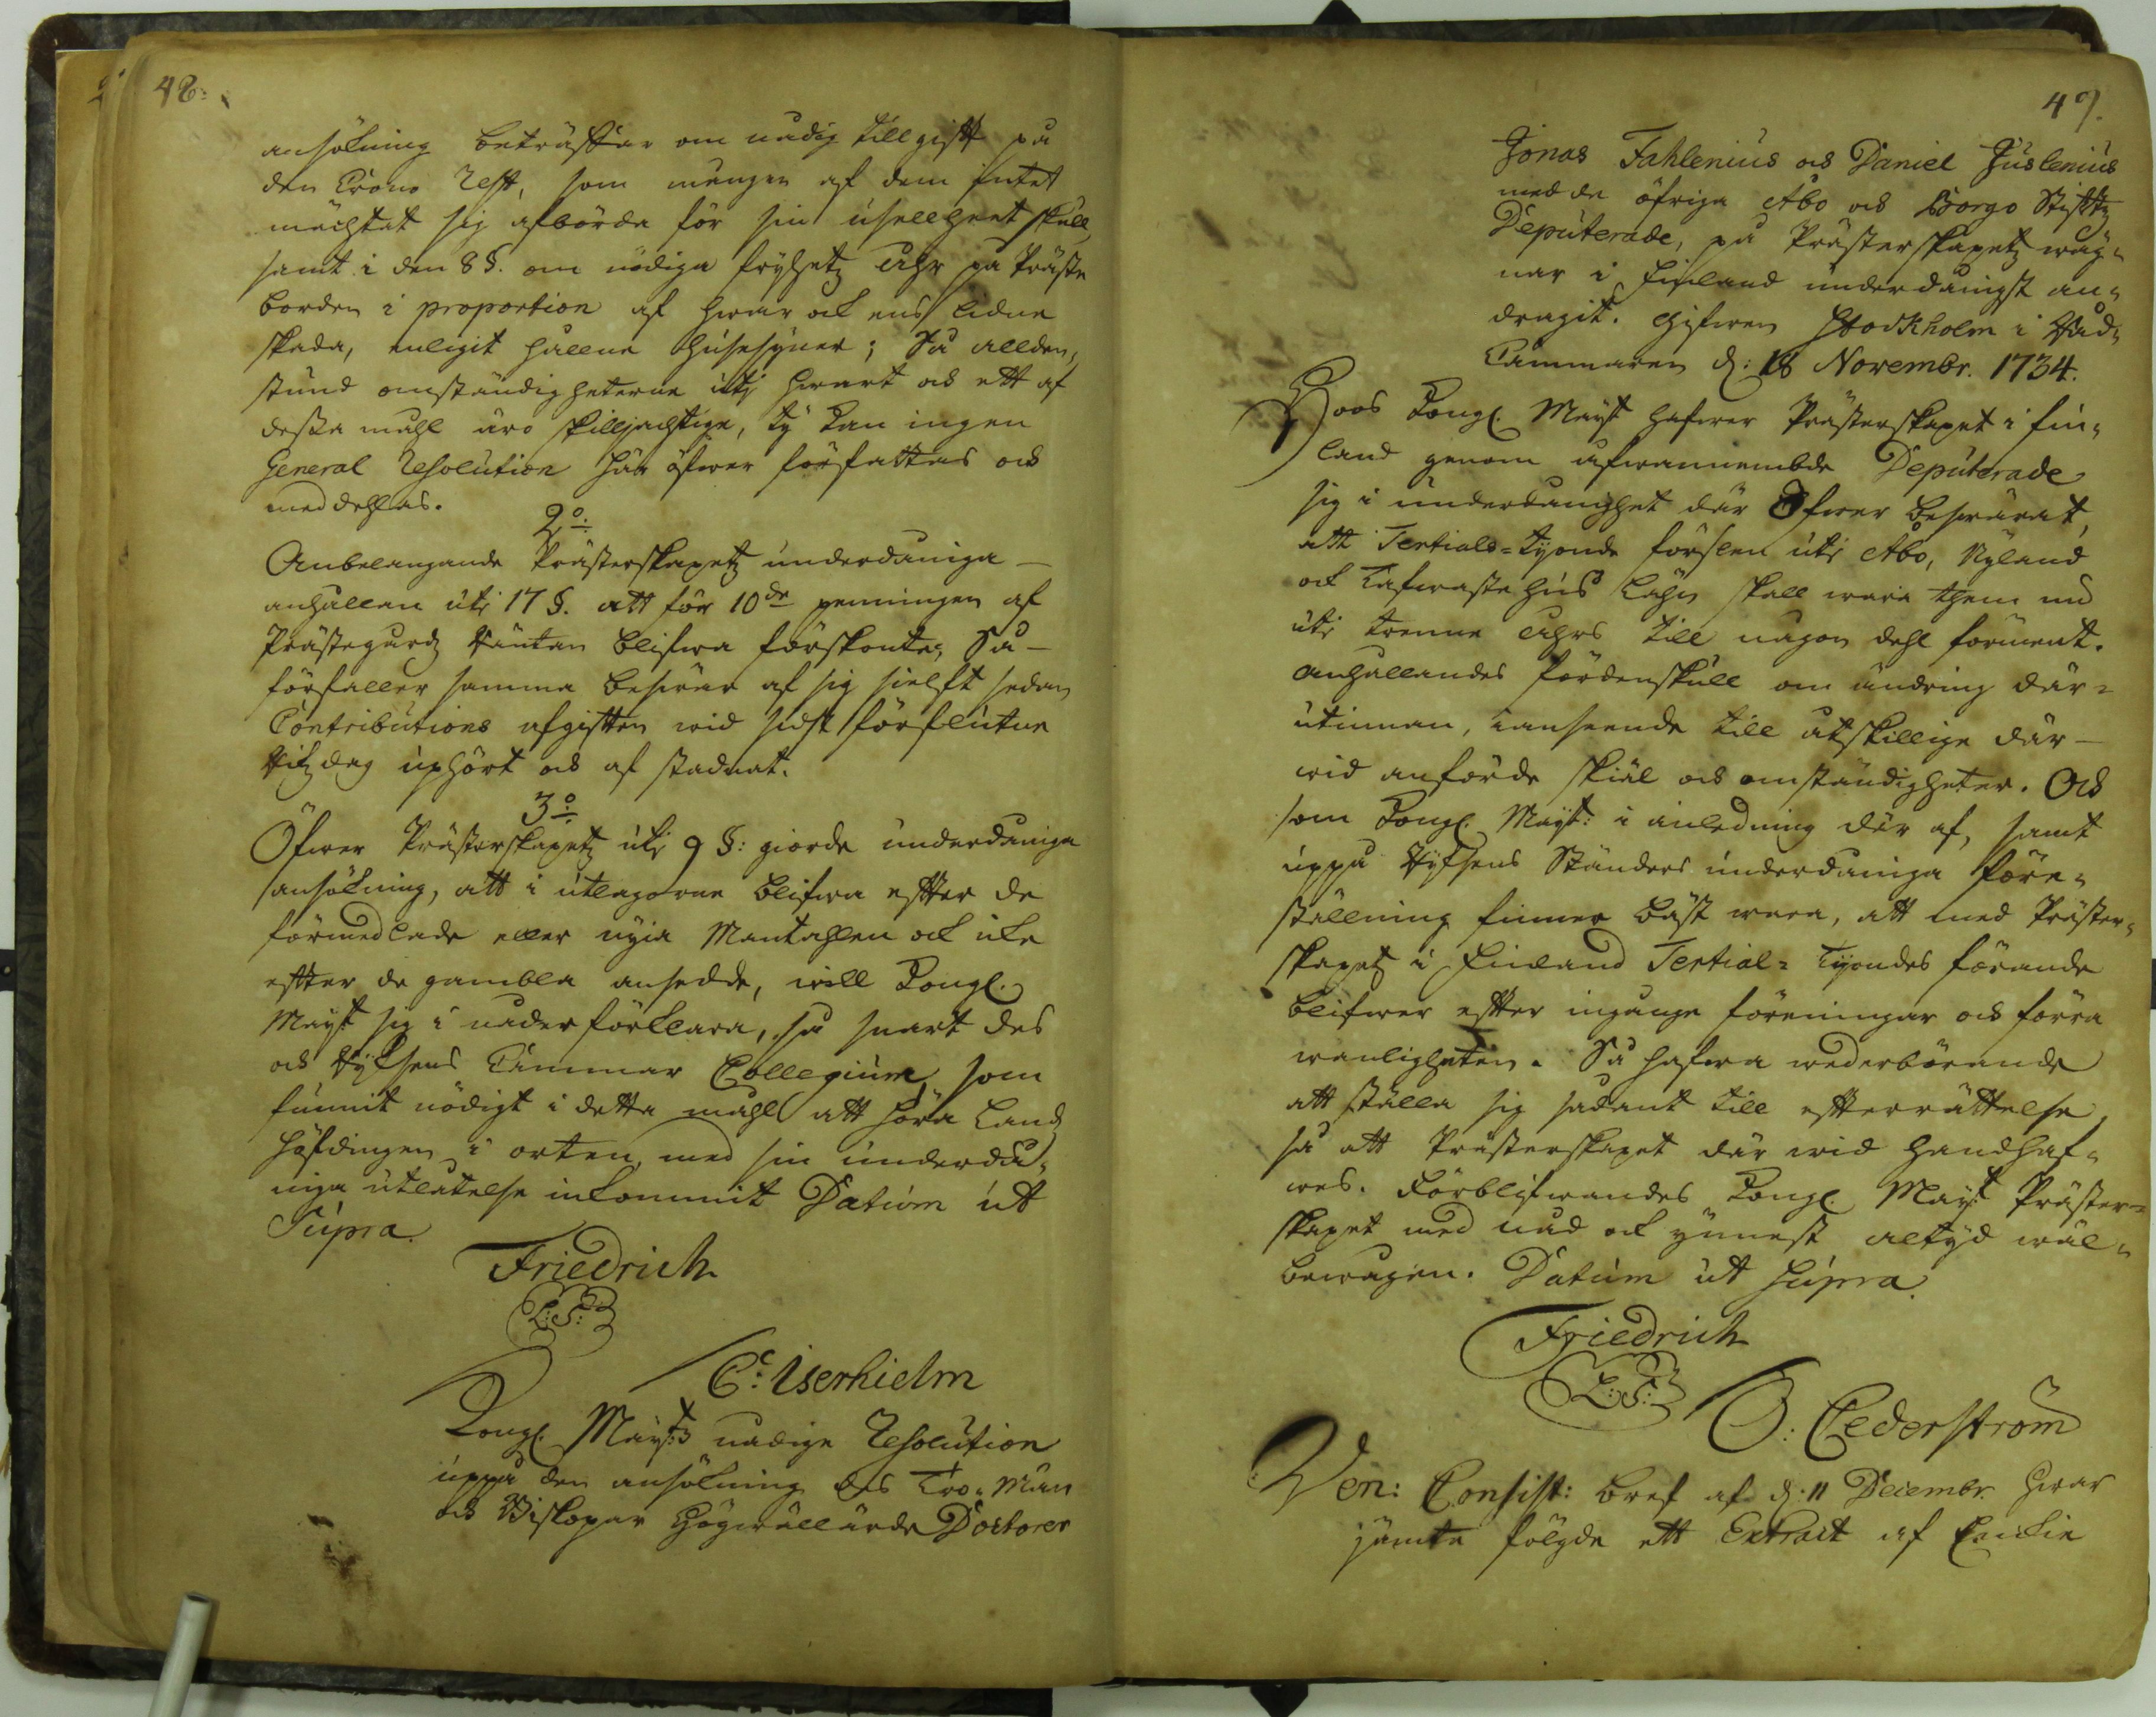 48.
ansökning beträffar om nådig tillgifft på
den Crono Rest, som mången af dem intet
mächtat sig afbörda för sin uselheet skull,
samt i den 8 §. om nödiga frijhetz åhr på Präste
borden i proportion af hwar ock ens lidne
skada, enligit hållne huusesyner; Så alldenn-
stund omständigheterne utj hwart och ett af
dessa måhl äro skilljachtige, ty kan ingen
General Resolution här öfwer författas och
meddehlas.
2o.
Anbelangande Prästerskapetz underdåniga
anhållen uti 17 §. att för 10de penningen af
Prästegårdz Räntan blifwa förskonte; Så
förfaller samma beswär af sig sielft sedan
Contributions afgifften wid sidst förflutne
Rikzdag uphört och af stadnat.
3o.
Öfwer Prästerskapetz utj 9 §: giorde underdåniga
ansökning, att i utlagorne blifwa effter de
förmedlade eller nyia Mantahlen ock icke
effter de gambla ansedde, will Kongl.
Mayst sig i nåder förklara, så snart des
och Rijksens Cammar Collegium, som
funnit nödigt i detta måhl att höra Landz
höfdingen i orten, med sin underdå-
niga utlåtelse inkommit Datum ut
Supra.
Friedrich
L:S:
C: Iserhielm
Kongl. Mayst:s nådige Resolution
uppå den ansökning des Tro-Män
och Biskopar Högwällärde Doctorer
49.
Jonas Fahlenius och Daniel Juslenius
med de öfriga Åbo och Borgo Stifftz
Deputerade, på Prästerskapetz wäg-
nar i Finland underdånigst an-
dragit. Gifwen Stockholm i Råd-
Cammaren d: 18 Novembr. 1734.
Hoos Kongl. Mayst hafwer Prästerskapet i Fin-
land genom ofwannembde Deputerade
sig i underdånighet där öfwer beswärat,
att Tertials-tijonde förslen uti Åbo, Nyland
och Tafwastehus Lähn skall wara them nu
uti trenne åhrs till någon dehl förment.
Anhållandes fördenskull om ändring där-
utinnan, i anseende till åtskillige där-
wid anförde skiäl och omständigheter. Och
som Kongl. Mayst: i anledning där af, samt
uppå Rijksens Ständers underdåniga före-
ställning finner bäst wara, att med Präster-
skapetz i Finland Tertial-Tijondes förande
blifwer effter ingångne föreningar och förra
wanligheten. Så hafwa wederbörande
att ställa sig sådant till effterrättelse,
så att Prästerskapet där wid handhaf-
wes. Förblifwandes Kongl. Mayst Präster-
skapet med nåd och ynnest altijd wäl-
bewågen. Datum ut supra.
Friedrich
L:S:
O: Cederström
Ven: Consist: bref af d: 11 Decembr. hwar
jämte fölgde ett Extract af